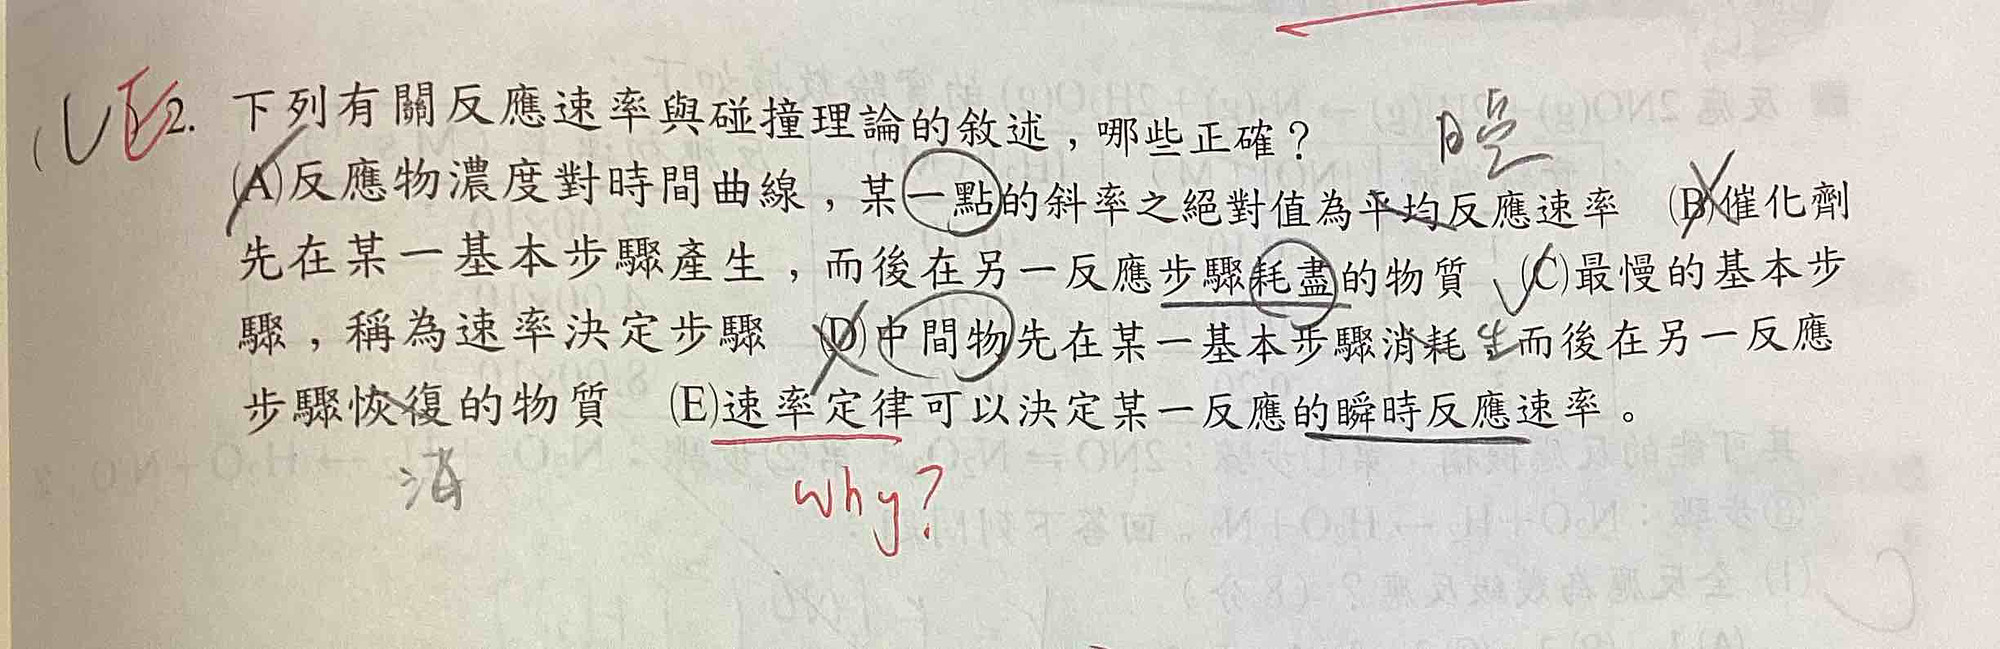 CE 2. 下列有關反應速率與碰撞理論的敘述，哪些正確？ 瞬
(A)反應物濃度對時間曲線，某一點的斜率之絕對值為平均反應速率 (B)催化劑
先在某一基本步驟產生，而後在另一反應步驟耗盡的物質 (C)最慢的基本步
驟，稱為速率決定步驟 (D)中間物先在某一基本步驟消耗生而後在另一反應
步驟恢復的物質 (E)速率定律可以決定某一反應的瞬時反應速率。
消
why?